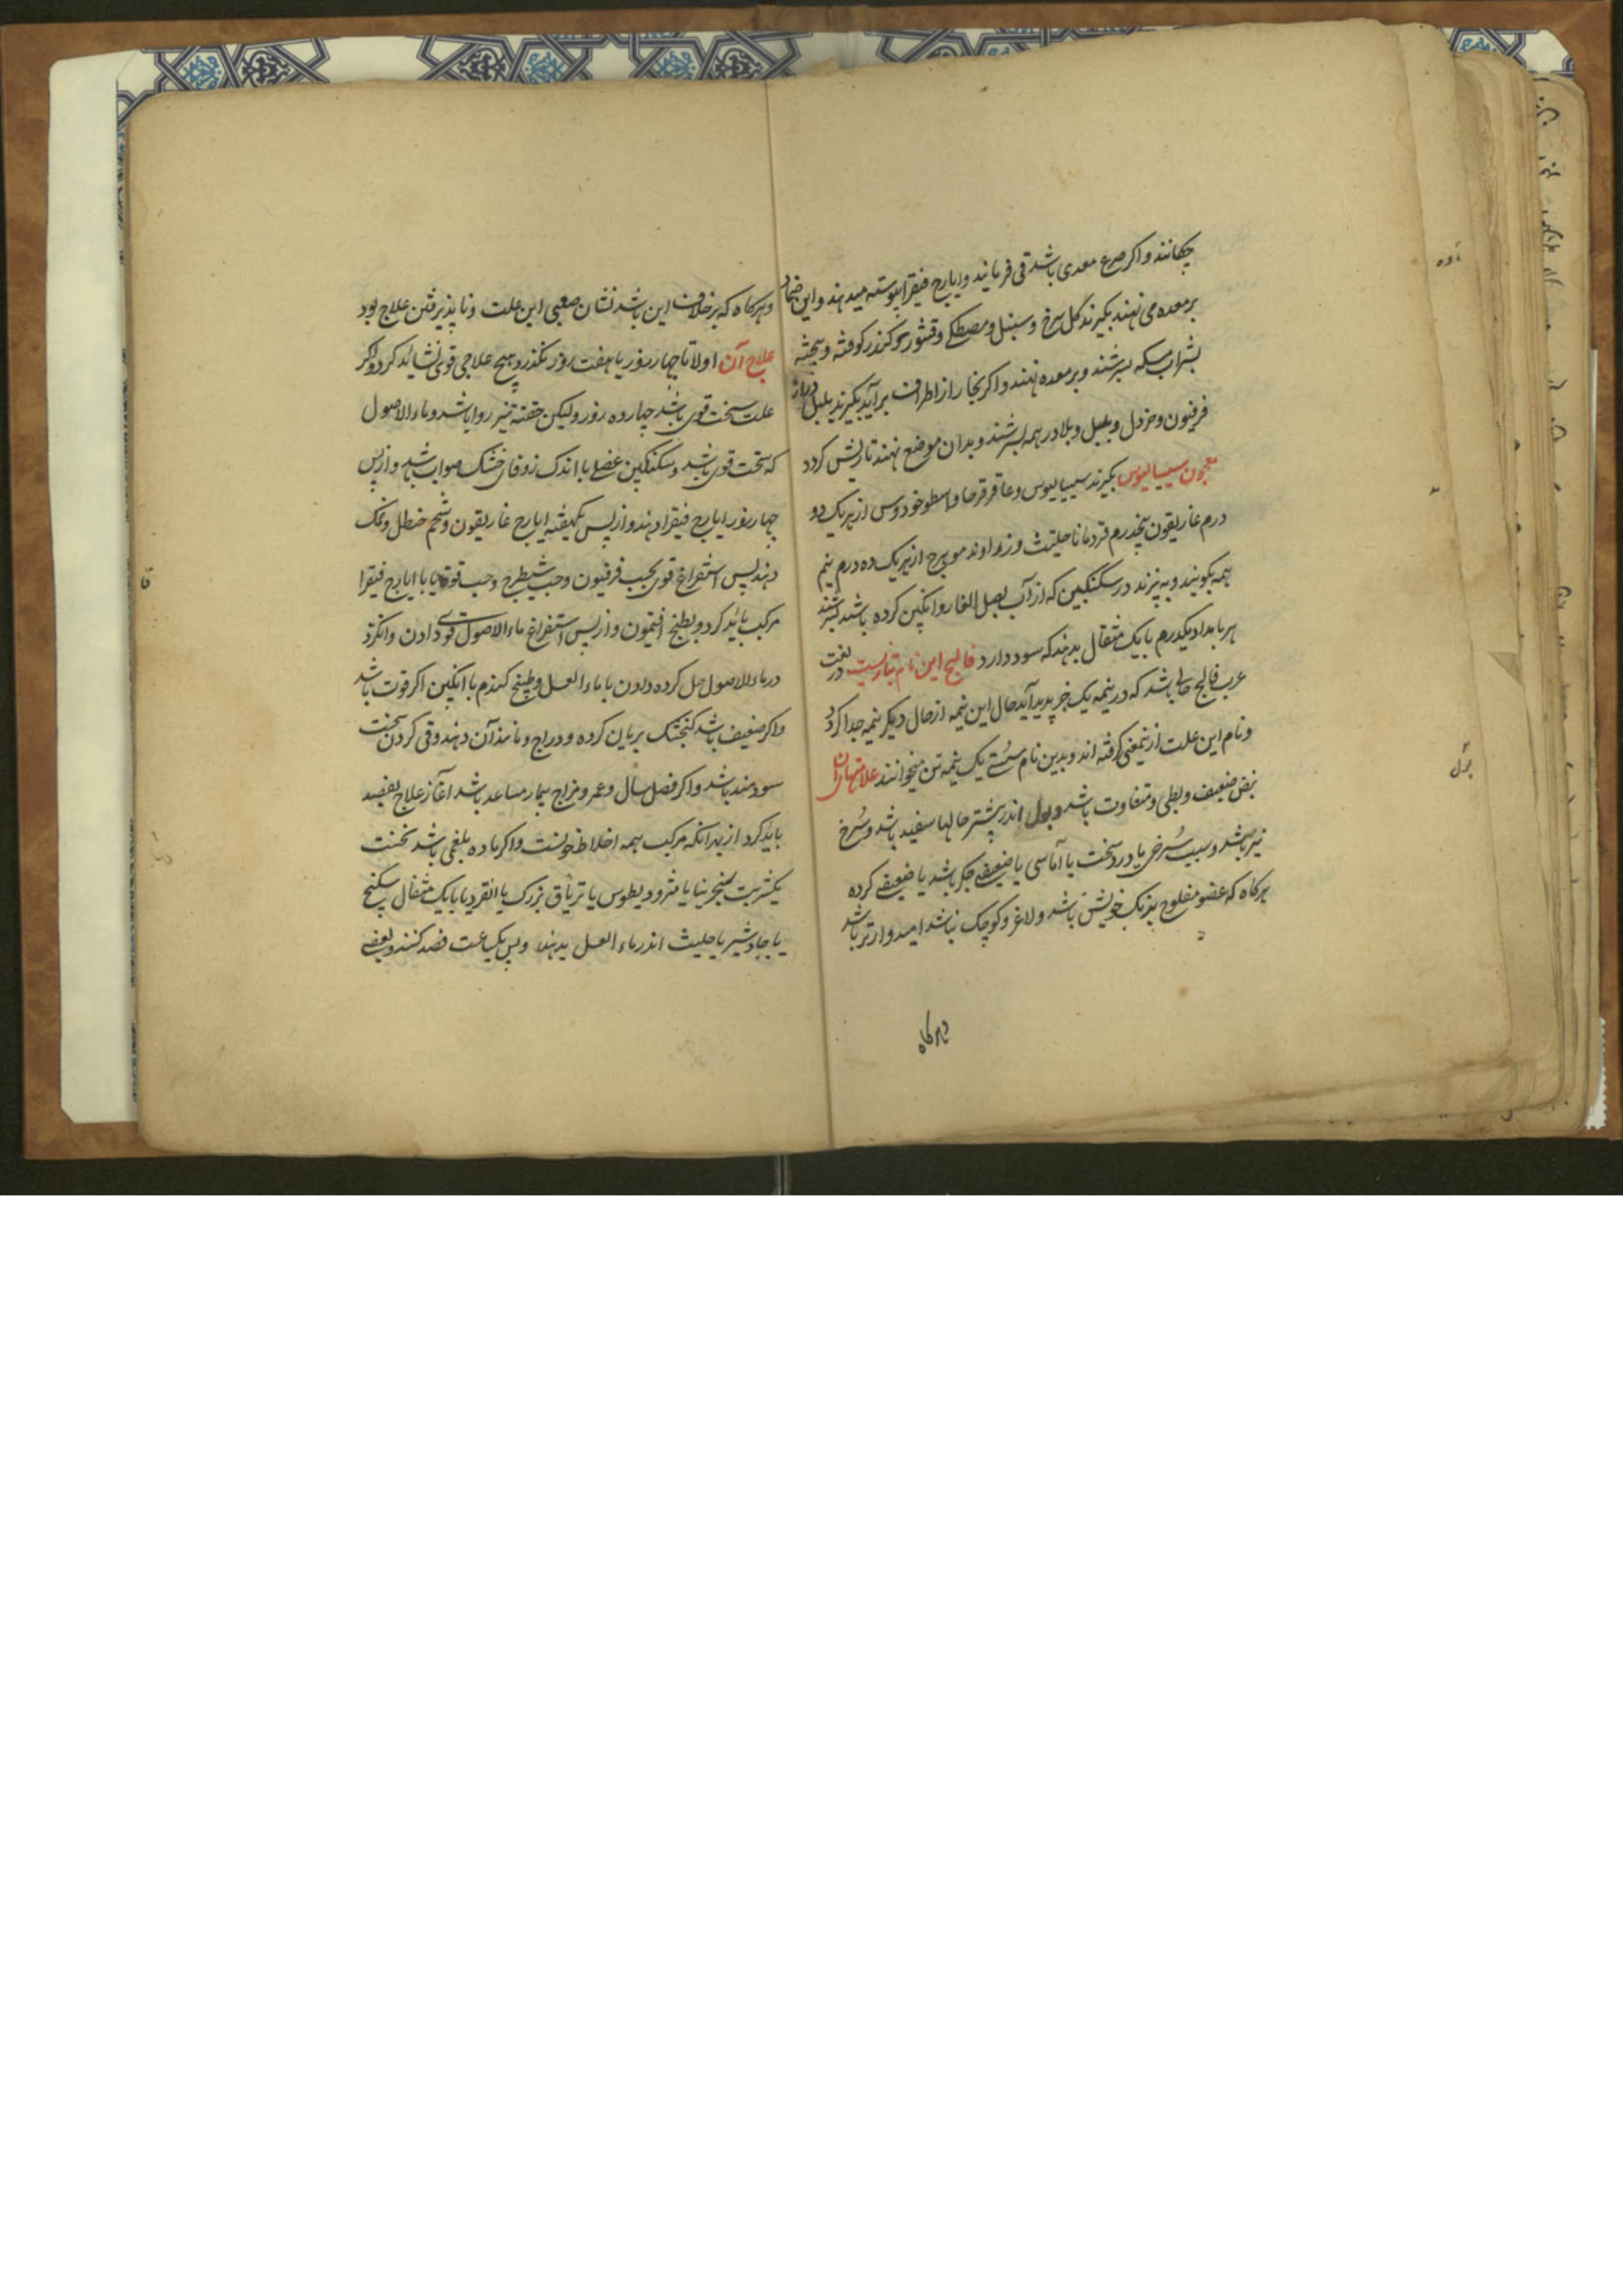 چکانند و اکر صرع معدی باشد قی فرمایند و ایارج فیقرا پیوسته میدهند و این ضماد
بر معده می نهند بکیرند کل سرخ و سنبل و مصطکی و قشور کندر کوفته و بیخته
بشراب سرشند و بر معده نهند و اکر بخار از اطراف بر آید بکیرند بلبل دراز
فرفیون و خردل و بلبل و بلادر همه بسرشند و بدان موضع نهند تا ریش کردد
معجون سیسالیوس بکیرند سیسالیوس و عاقرقرحا و اسطوخودوس از هر یک دو
درم غاریقون پنجدرم قردمانا حلتیت و زراوند مدحرج از هر یک ده درم نیم
همه بکوبند و به پزند در سکنکبین که از آب بصل الفار و انکبین کرده باشند بسرشند
هر بامداد یکدرم یا یک مثقال بدهند که سود دارد فالج این نام تبازیست در لغت
عرب فالج حالی باشد که در نیمه یک چیز پدید آید حال این نیمه از حال دیکر نیمه جدا کردد
و نام این علت از یمعنی کرفته اند و بدین نام سستی یک نیمه تن میخوانند علامتهاء آن
نبض ضعیف و بطی و متفاوت باشد و بول اندر بیشتر حالها سفید باشد و سُرخ
نیز باشد و سبب سُرخی یا درد سخت یا آماسی یا ضعیفی جکر باشد یا ضعیفی کرده
هرکاه که عضو مفلوج برنک خویش باشد و لاغر و کوچک نباشد امیدوارتر باشد
وهرکاه
وهرکاه که بر خلاف این باشد نشان صعبی این علت و ناپذیرفتن علاج بود
علاج آن اولا تا چهار روز یا هفت روز نکذرد هیچ علاجی قوی نشاید کرد و اکر
علت سخت قوی باشد چهارده روز ولیکن حقنه تیز روا باشد و ماء الاصول
که سخت قوی باشد و سکنکبین عنصلی با اندک زوفای خشک صواب باشد و از پس
چهار روز ایارج فیقرا دهند و از پس یکهفته ایارج غاریقون و شحم حنظل و نمک
دهند پس استفراغ قوی بحب فرفیون و حب شیطرج و حب قوقایا با ایارج فیقرا
مرکب باید کرد و بطبخ افتیمون و از پس استفراغ ماء الاصول قوی دادن و انکژد
در ماء الاصول حل کرده دادن با ماء العسل و طبیخ کندم با انکبین اکر قوت باشد
و اکر ضعیف باشد کنجشک بریان کرده و دراج و مانند آن دهند و قی کردن سخت
سودمند باشد و اکر فصل سال و عمر و مزاج بیمار مساعد باشد آغاز علاج بفصد
باید کرد از بهر انکه مرکب همه اخلاط خونست و اکر ماده بلغمی باشد نخست
یکشربت سنجرینا یا مثرودیطوس یا تریاق بزرک یا انقردیا با یک مثقال سکبینج
یا جاوشیر یا حلتیت اندر ماء العسل بدهند و پس یکساعت فصد کنند و بعضی